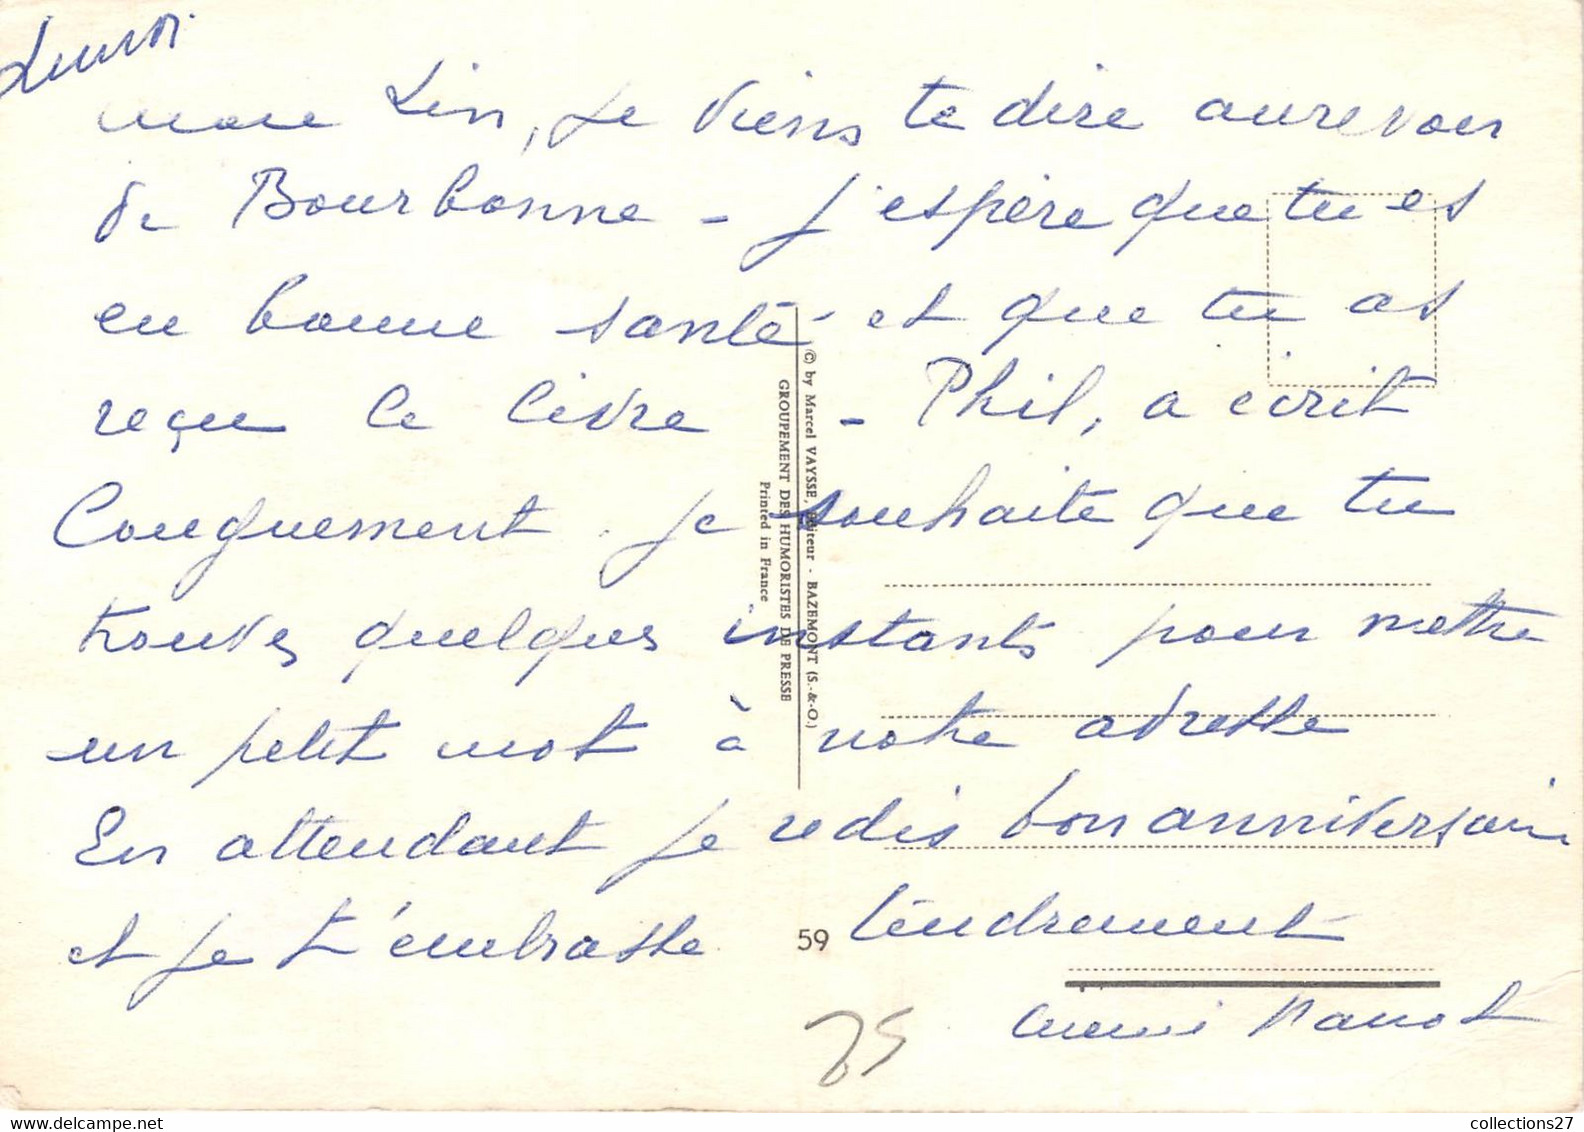 Lundi
mon Lin, je viens te dire aurevoir
de Bourbonne - j'espère que tu es
en bonne santé et que tu as
reçu le livre - Phil, a écrit
Longuement. je souhaite que tu
trouves quelques instants pour mettre
un petit mot à notre adresse
En attendant je redis bon anniversaire
et je t'embrasse tendrement
Manot
© by Marcel VAYSSE, Editeur - BAZEMONT (S.-&-O.)
GROUPEMENT DES HUMORISTES DE PRESSE
Printed in France
59
collections27